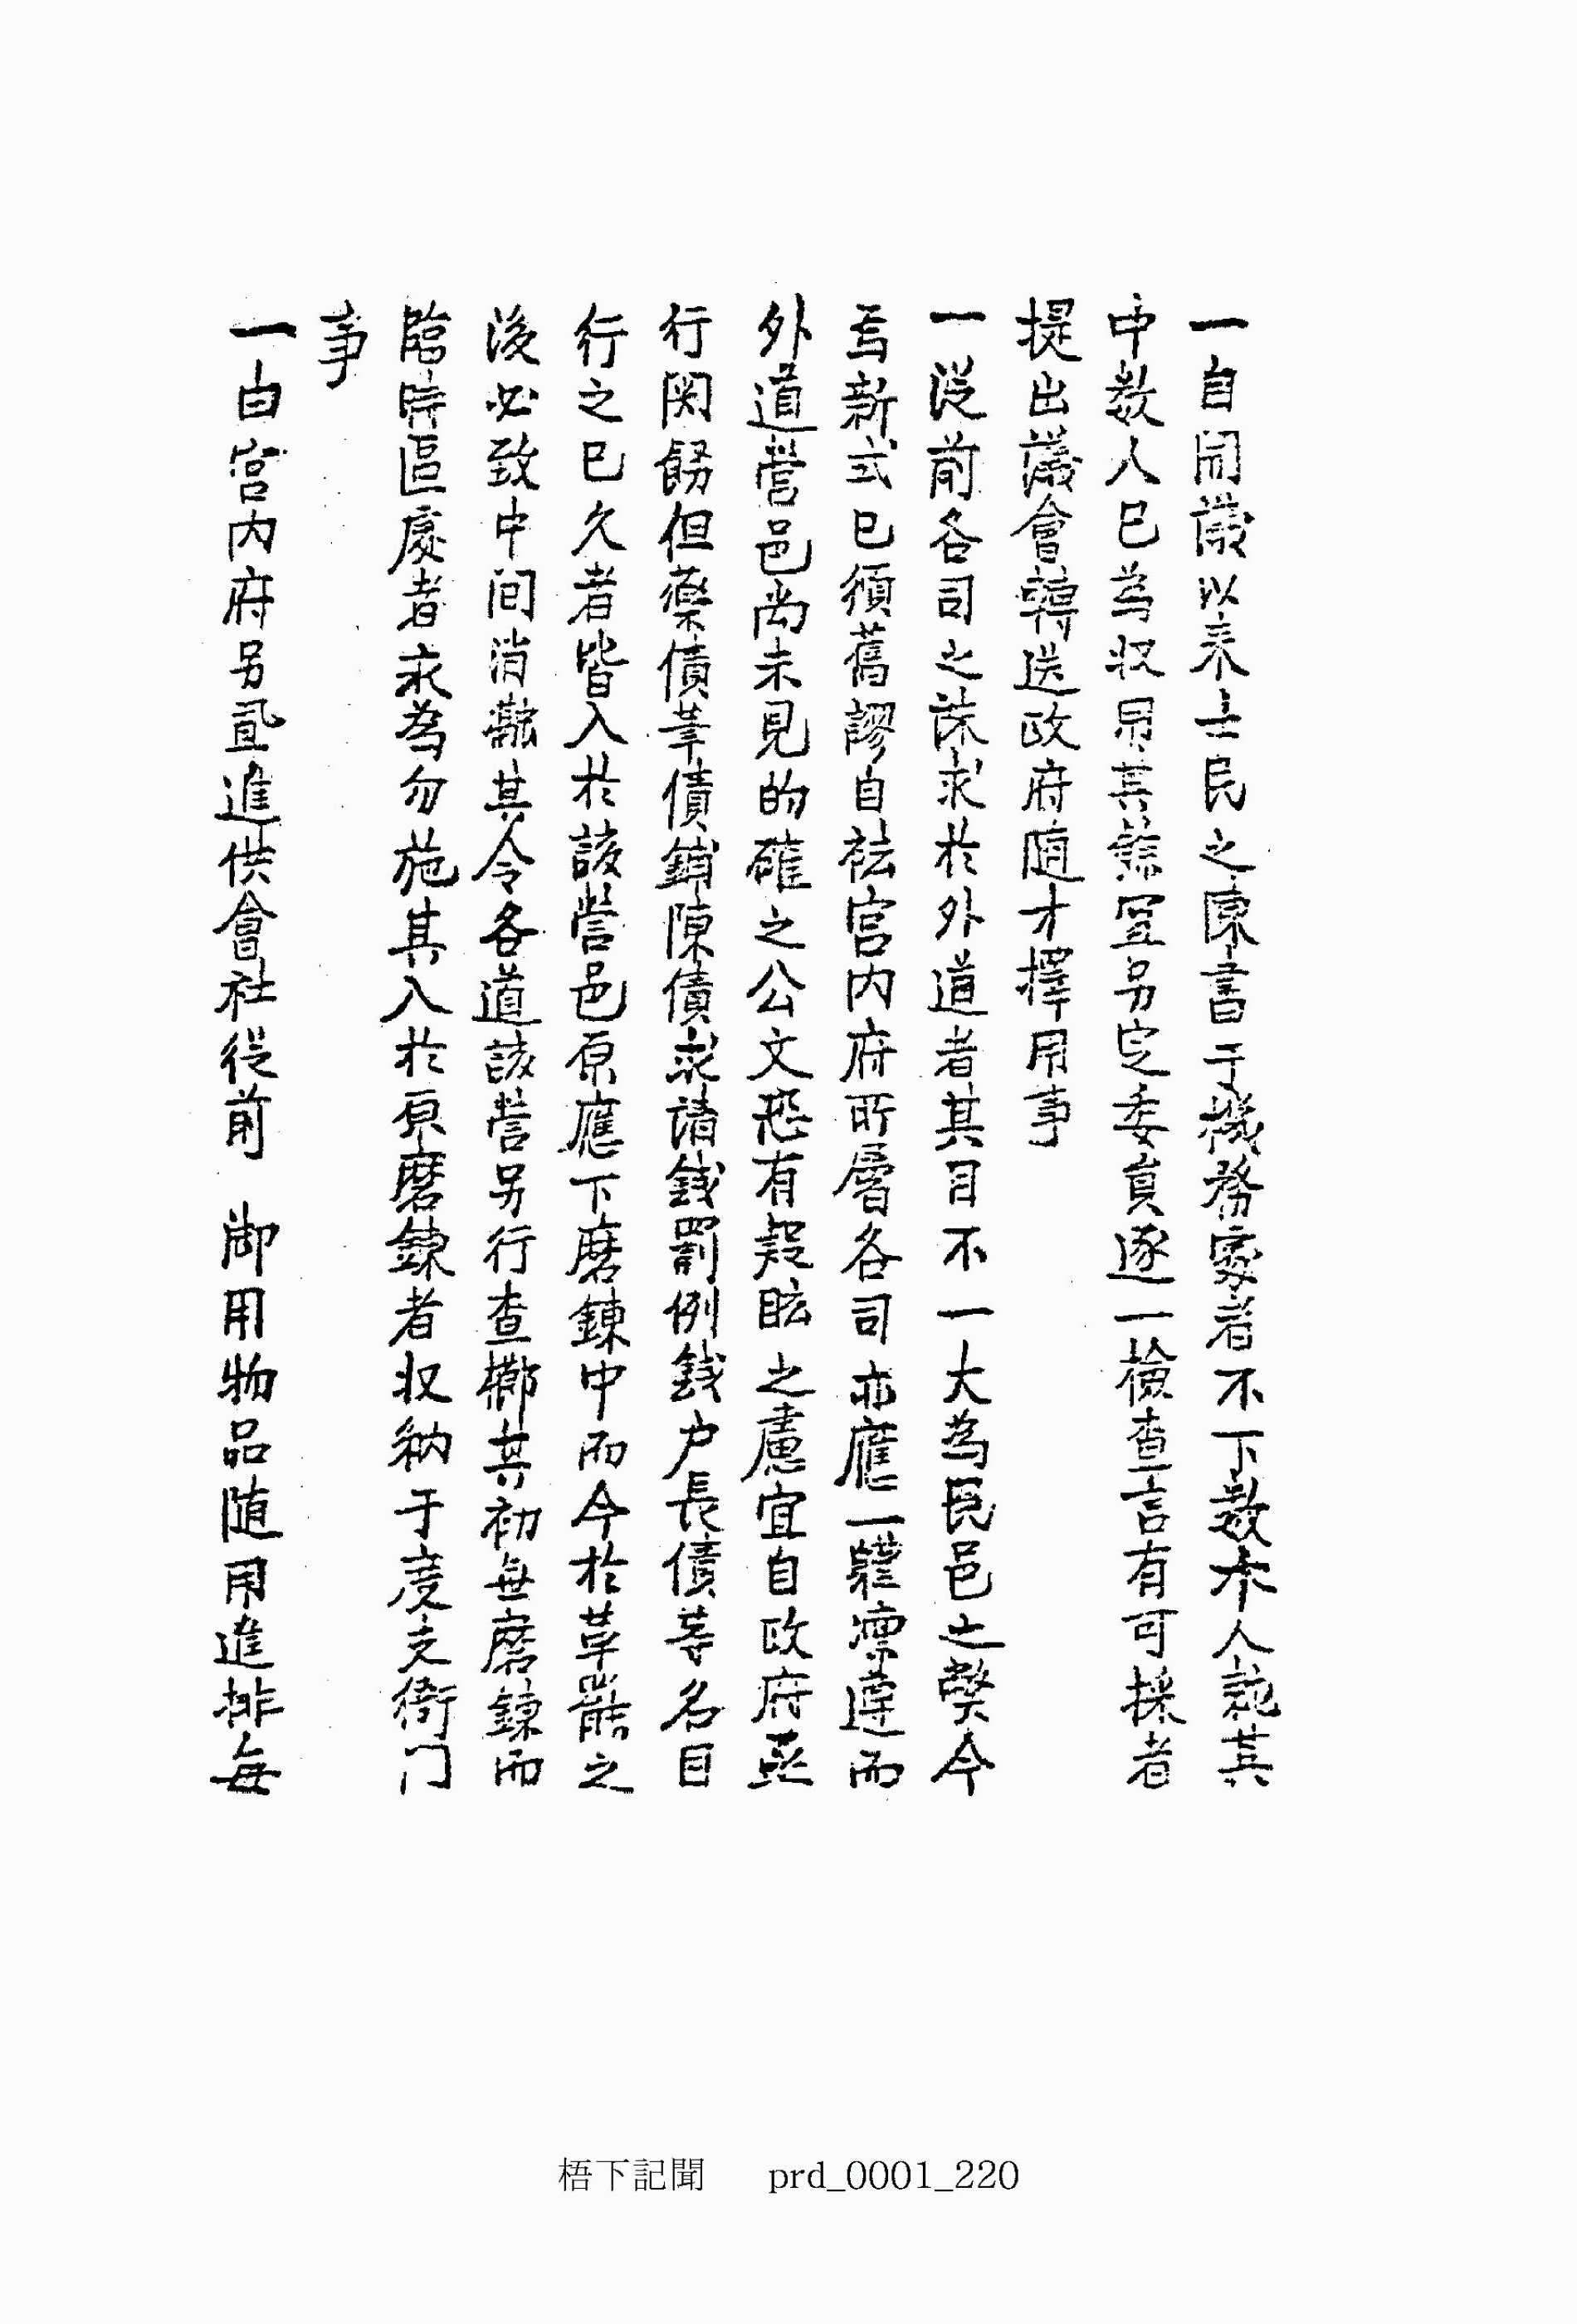 一自開議以来士民之陳書于機務家者不下數十人就其
中數人已為収用其餘宜另定委員逐一檢查言有可採者
提出議會轉送政府随才擇用事
一従前各司之誅求於外道者其目不一大為民邑之弊今
焉新式已頒舊謬自袪宮内府所屬各司亦應一軆凛遵而
外道營邑尚未見的確之公文恐有疑眩之慮宜自政府亟
行関飭但藥債筆債鋪陳債求請錢罰例錢戶長債等名目
行之已久者皆入於該營邑原應下磨鍊中而今於革罷之
後必致中间消融其令各道該營另行查擲其初無磨鍊而
臨時區處者永為勿施其入於原磨鍊者収納于度支衙门
事
一自宮内府另置進供會社従前 御用物品随用進排每
梧下記聞 prd_0001_220